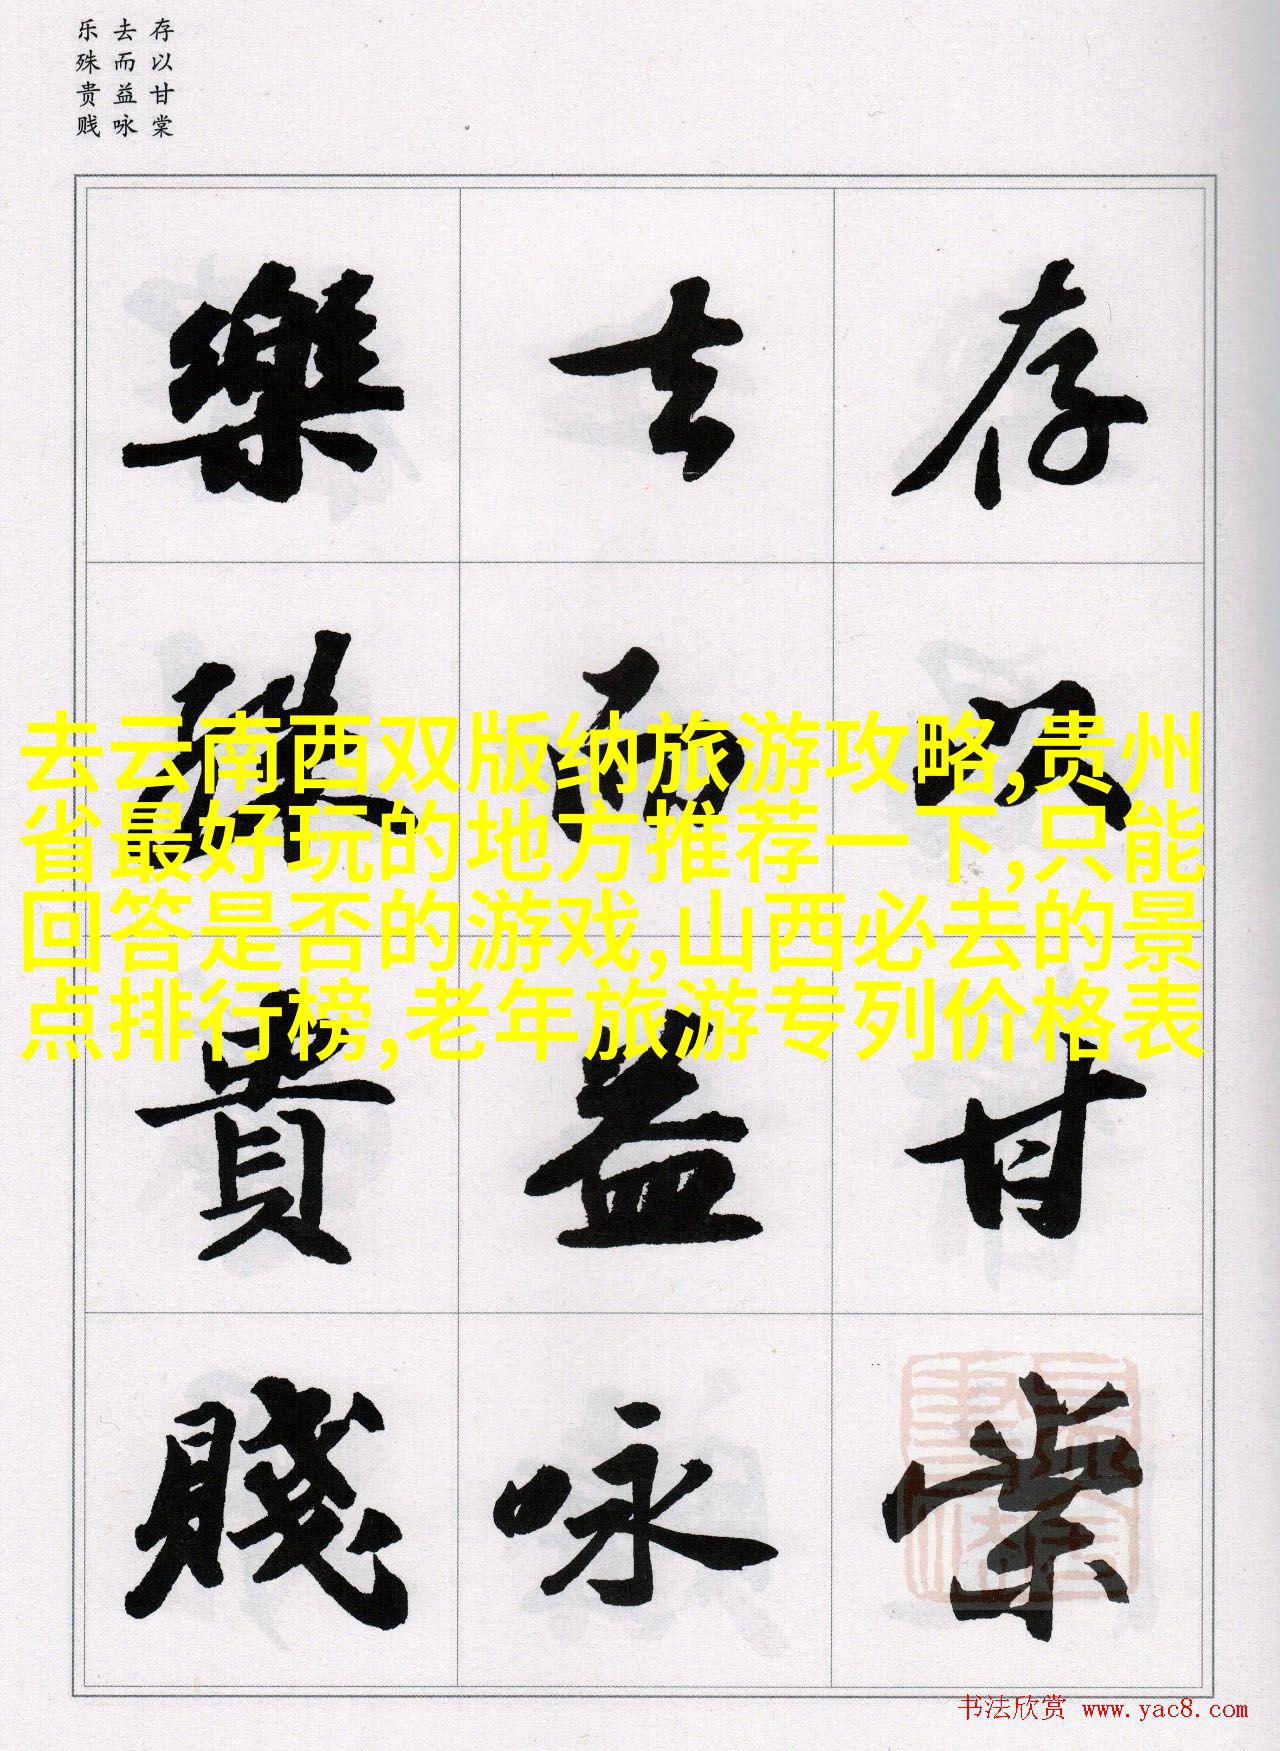 存以甘棠
去而益咏
乐殊贵贱
存以甘棠
去而益詠
樂殊貴賤
去云南西双版纳旅游攻略,贵州
省最好玩的地方推荐一下,只能
回答是否的游戏,山西必去的景
点排行榜,老年旅游专列价格表
书法欣赏 www.yac8.com